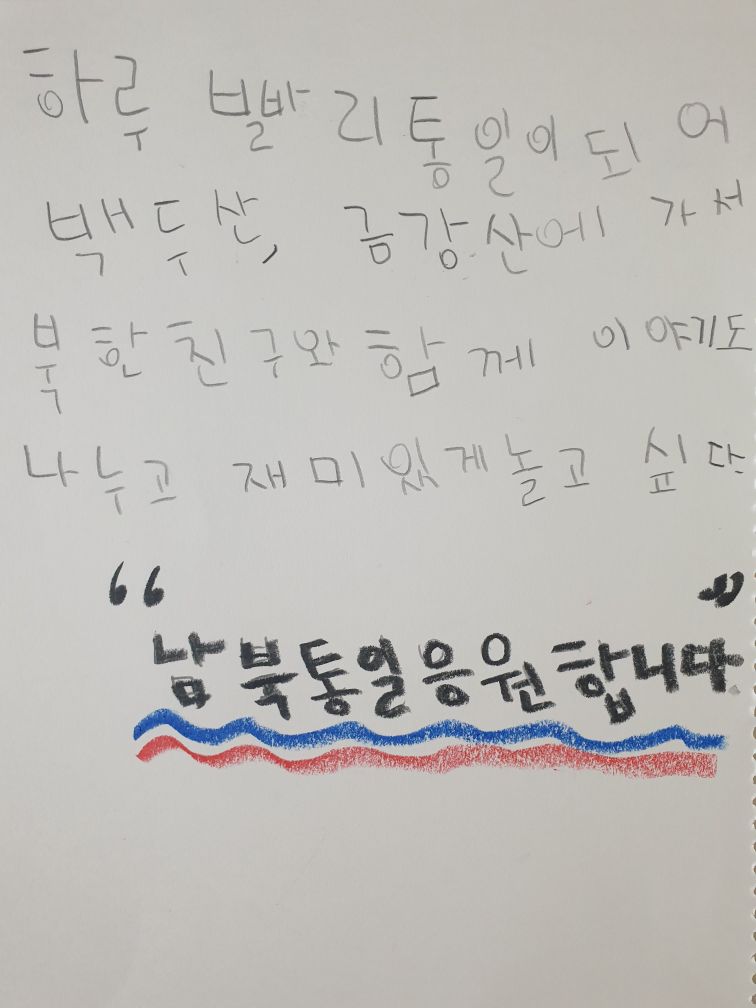 하루 발발리 통일이 되어
백두산, 금강산에 가서
북한친구와 함께 이야기도
나누고 재미있게 놀고 싶다
“남북통일응원합니다”